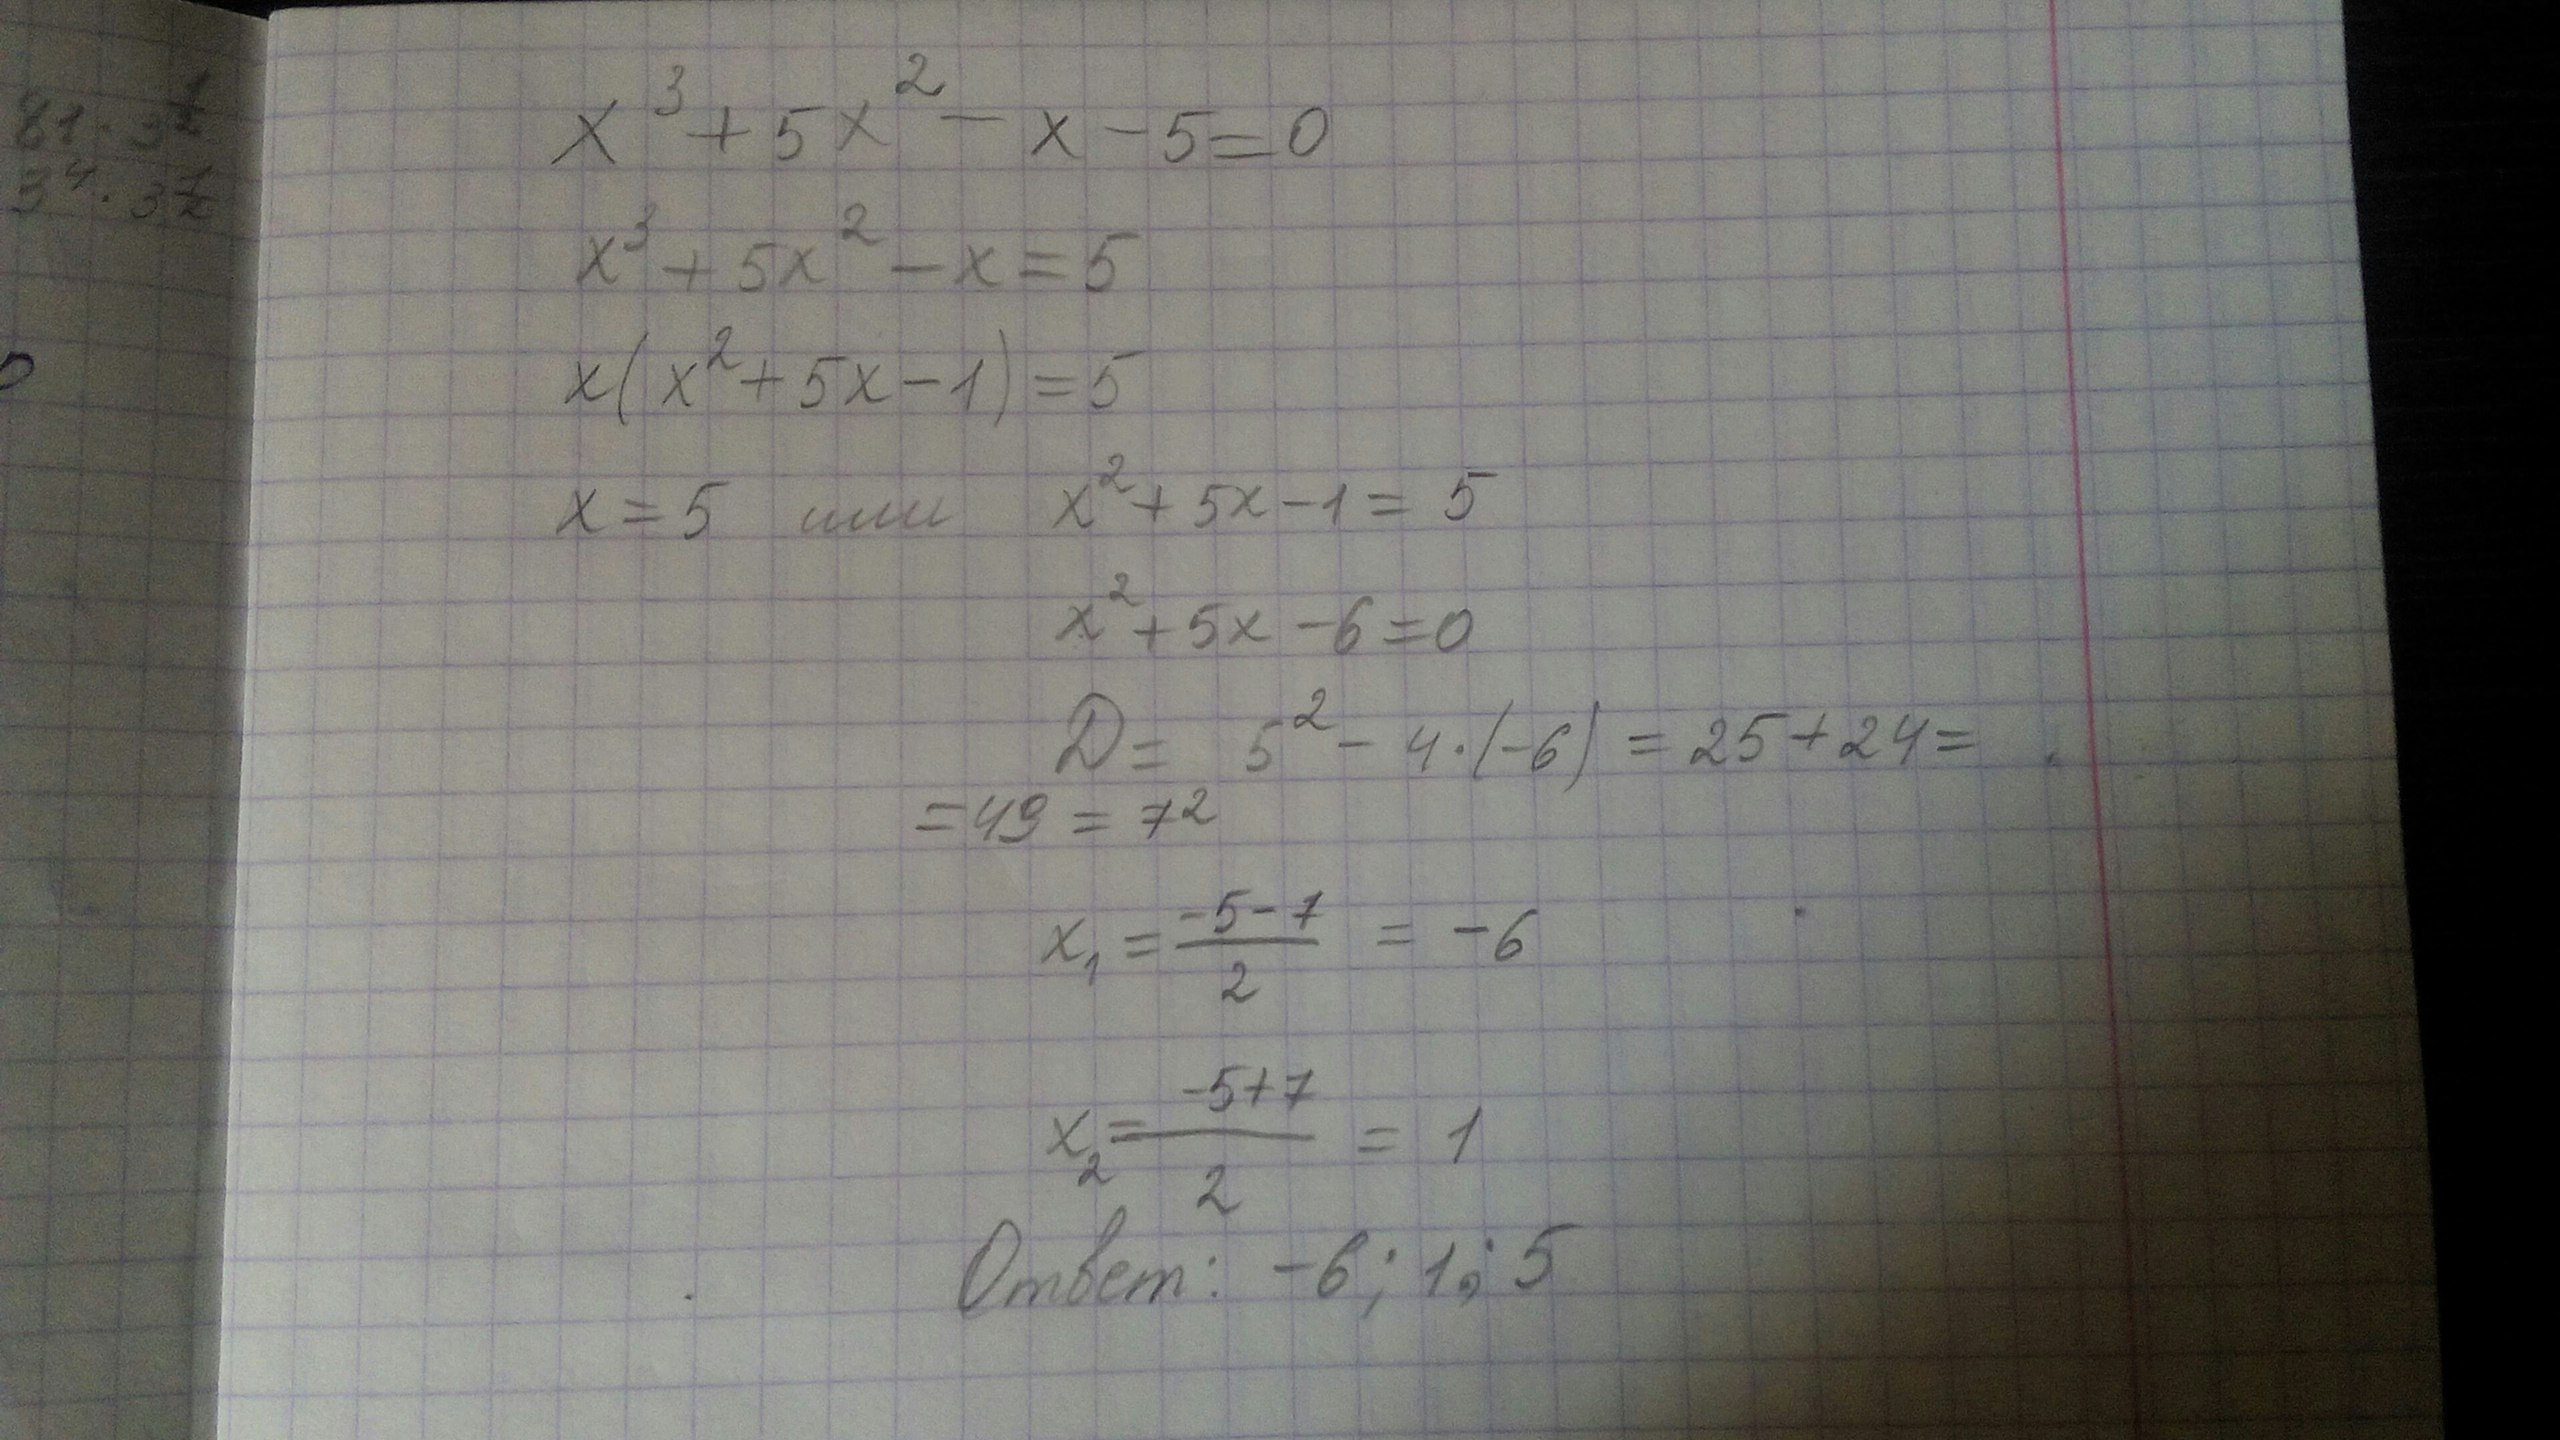 81 · 3^(1/2)
3^4 · 3^(1/2)
x³ + 5x² - x - 5 = 0
x³ + 5x² - x = 5
x(x² + 5x - 1) = 5
x = 5 или x² + 5x - 1 = 5
x² + 5x - 6 = 0
D = 5² - 4·(-6) = 25 + 24 =
= 49 = 7²
x₁ = (-5-7)/2 = -6
x₂ = (-5+7)/2 = 1
Ответ: -6; 1; 5